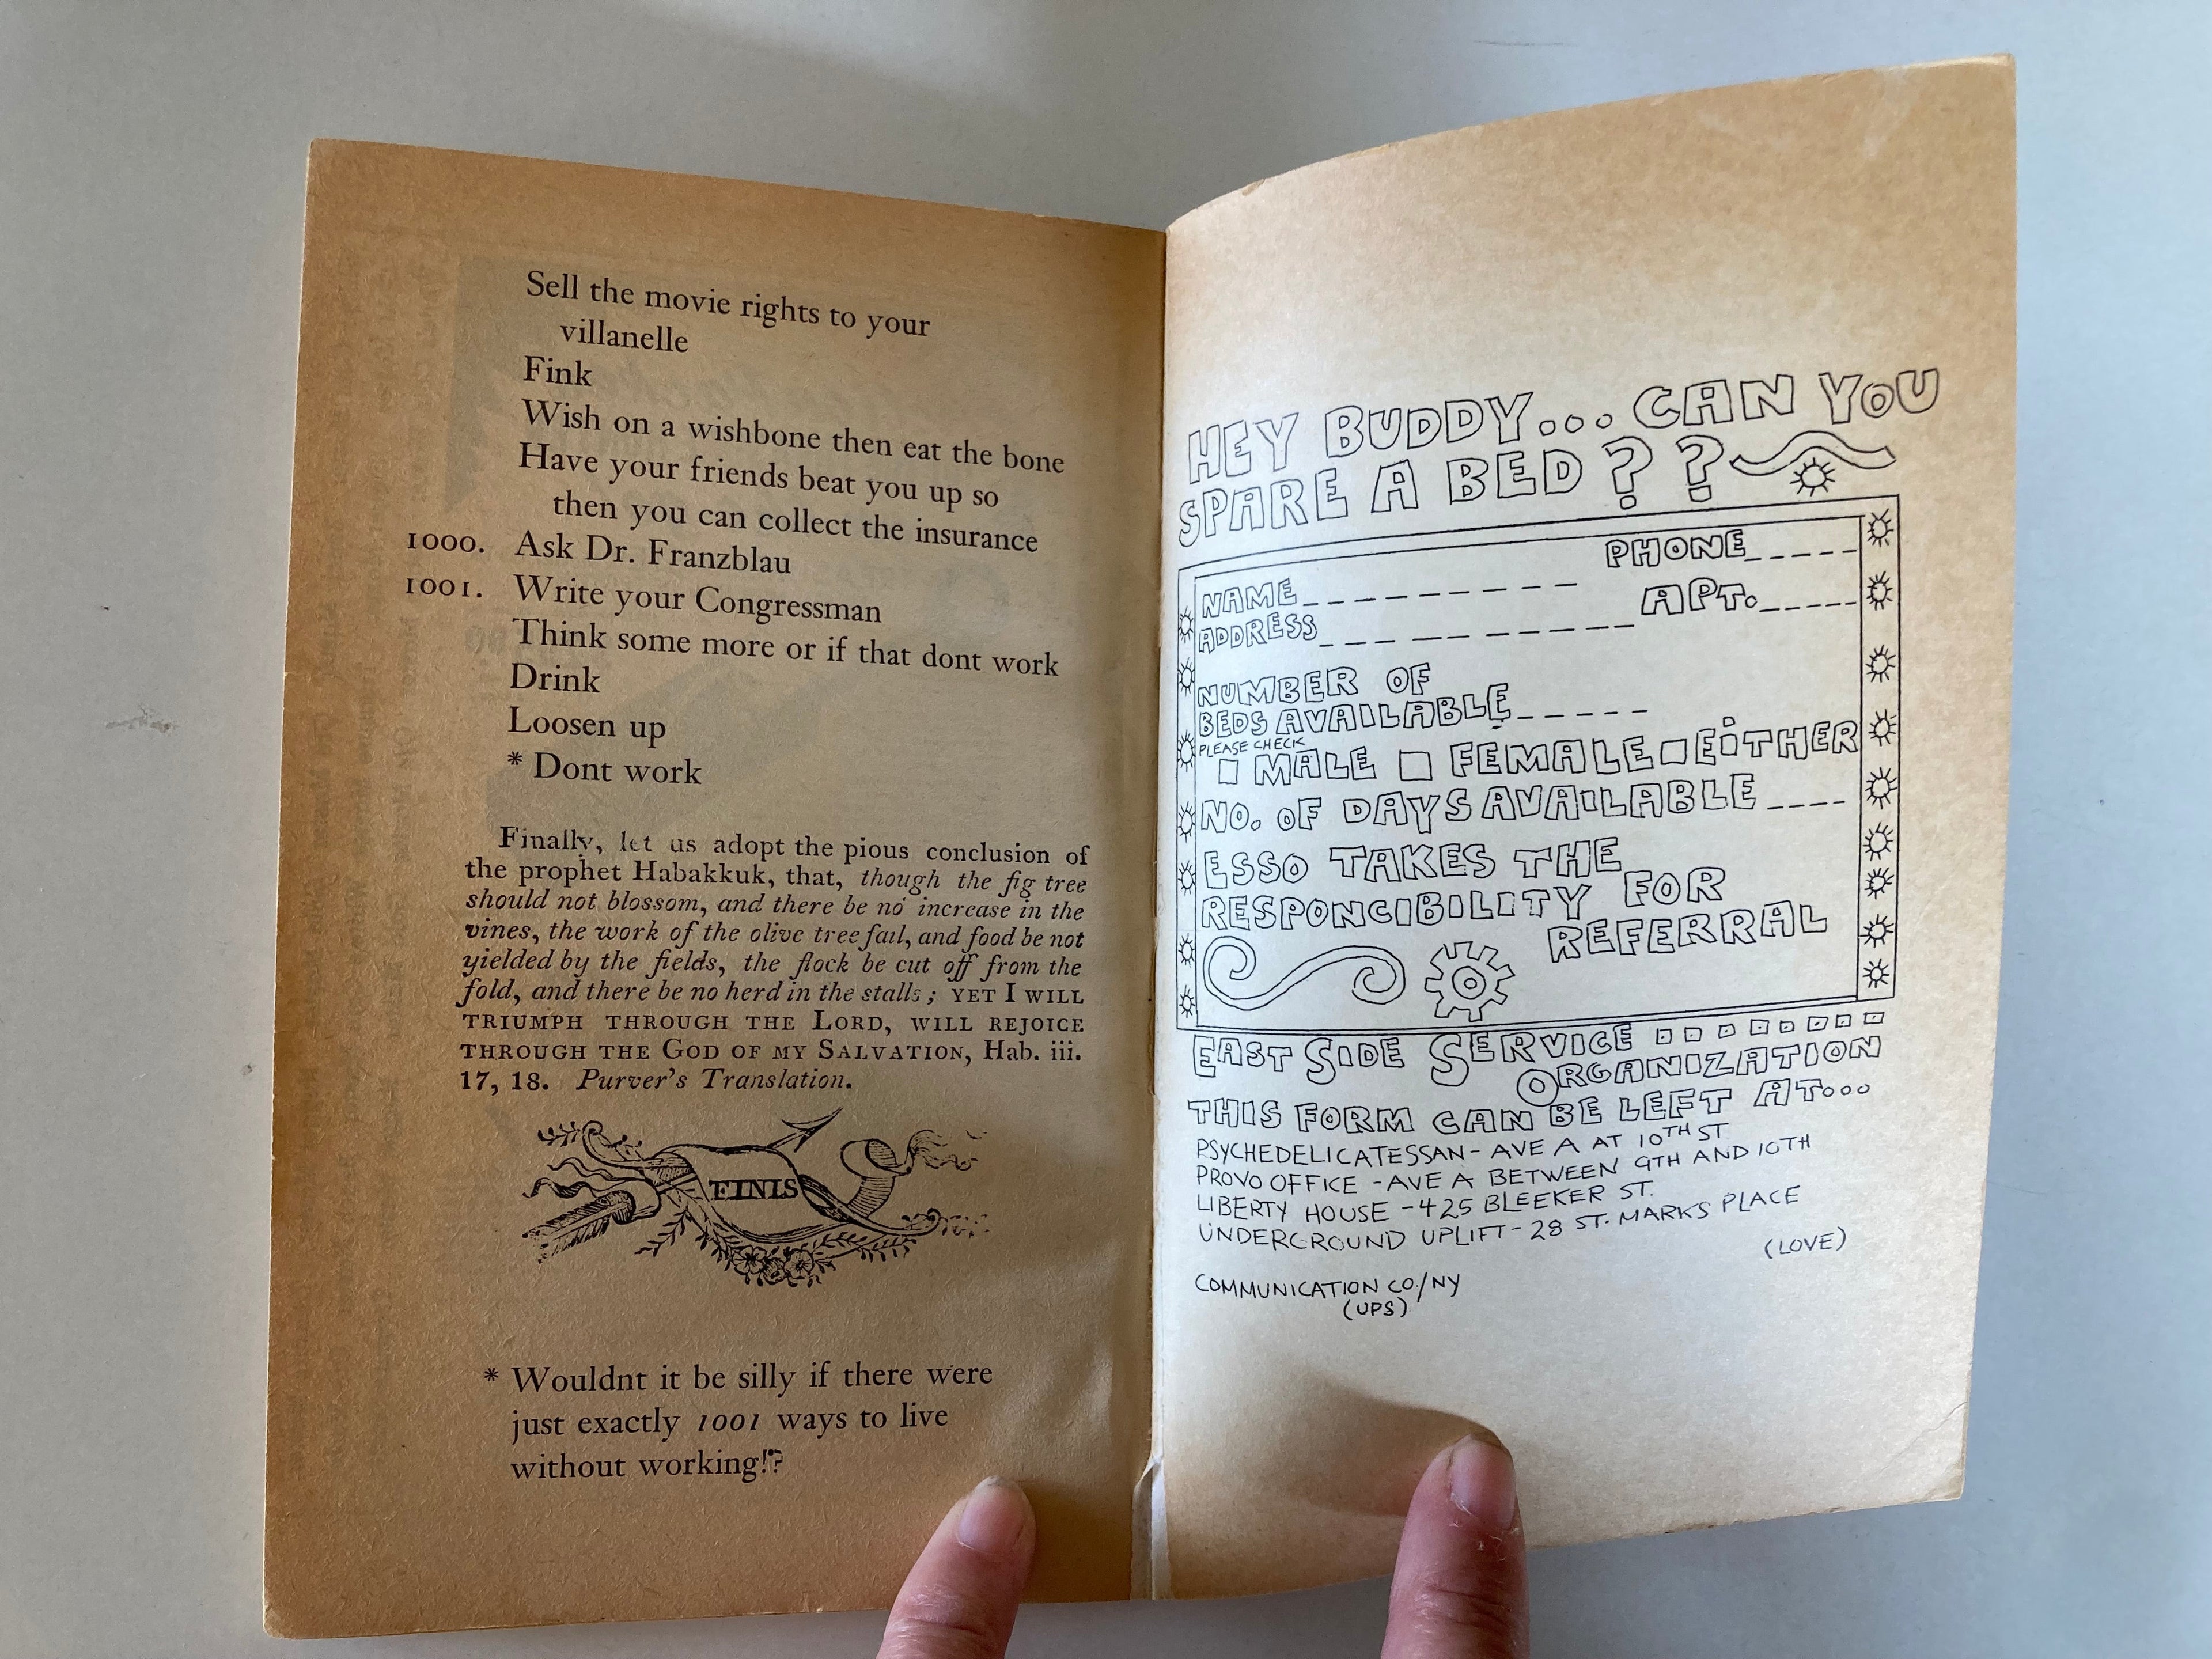 Sell the movie rights to your
villanelle
Fink
Wish on a wishbone then eat the bone
Have your friends beat you up so
then you can collect the insurance
1000. Ask Dr. Franzblau
1001. Write your Congressman
Think some more or if that dont work
Drink
Loosen up
* Dont work
Finally, let us adopt the pious conclusion of
the prophet Habakkuk, that, though the fig tree
should not blossom, and there be no increase in the
vines, the work of the olive tree fail, and food be not
yielded by the fields, the flock be cut off from the
fold, and there be no herd in the stalls; YET I WILL
TRIUMPH THROUGH THE LORD, WILL REJOICE
THROUGH THE GOD OF MY SALVATION, Hab. iii.
17, 18. Purver's Translation.
FINIS
* Wouldnt it be silly if there were
just exactly 1001 ways to live
without working!?
HEY BUDDY... CAN YOU
SPARE A BED??
PHONE_____
NAME_________
APT._____
ADDRESS__________
NUMBER OF
BEDS AVAILABLE_____
PLEASE CHECK
□ MALE □ FEMALE □ EITHER
NO. OF DAYS AVAILABLE____
ESSO TAKES THE
RESPONCIBILITY FOR
REFERRAL
EAST SIDE SERVICE
ORGANIZATION
THIS FORM CAN BE LEFT AT...
PSYCHEDELICATESSAN- AVE A AT 10TH ST
PROVO OFFICE -AVE A BETWEEN 9TH AND 10TH
LIBERTY HOUSE -425 BLEEKER ST.
UNDERGROUND UPLIFT- 28 ST. MARKS PLACE
(LOVE)
COMMUNICATION CO./NY
(UPS)